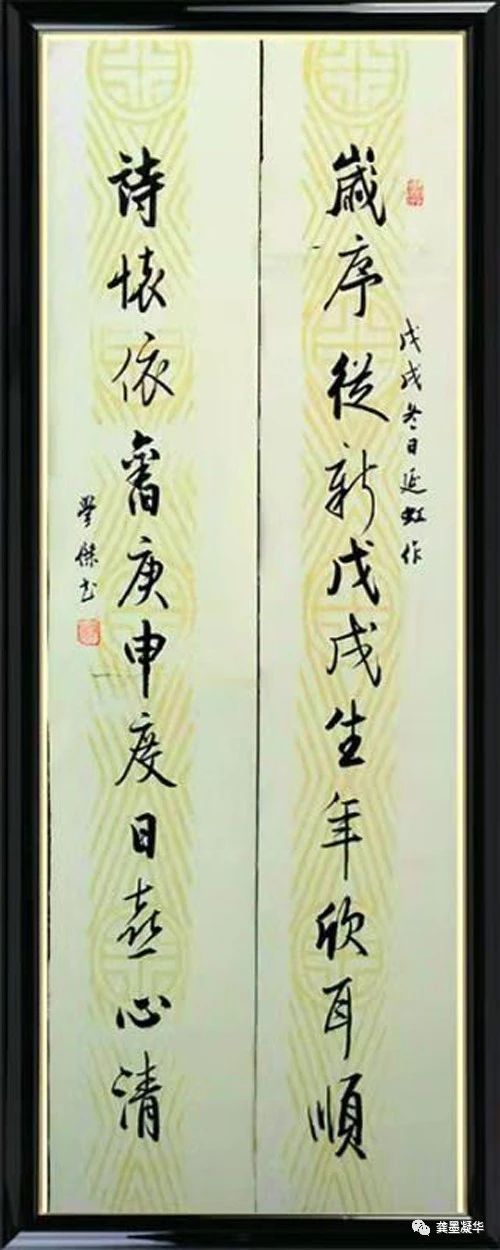 戊戌冬日延虹作
歲序從新戊戌生年欣耳順
詩懷依舊庚申度日喜心清
學傑書
龚墨凝华